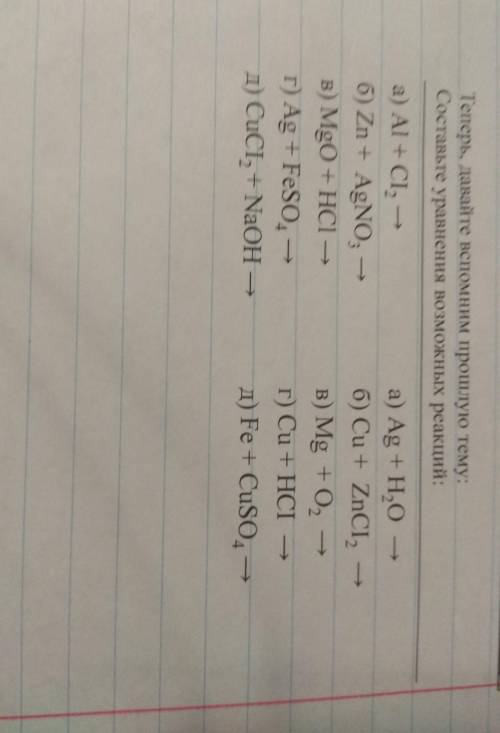 Теперь, давайте вспомним прошлую тему:
Составьте уравнения возможных реакций:
а) Al + Cl₂ →
б) Zn + AgNO₃ →
в) MgO + HCl →
г) Ag + FeSO₄ →
д) CuCl₂ + NaOH →
а) Ag + H₂O →
б) Cu + ZnCl₂ →
в) Mg + O₂ →
г) Cu + HCl →
д) Fe + CuSO₄ →